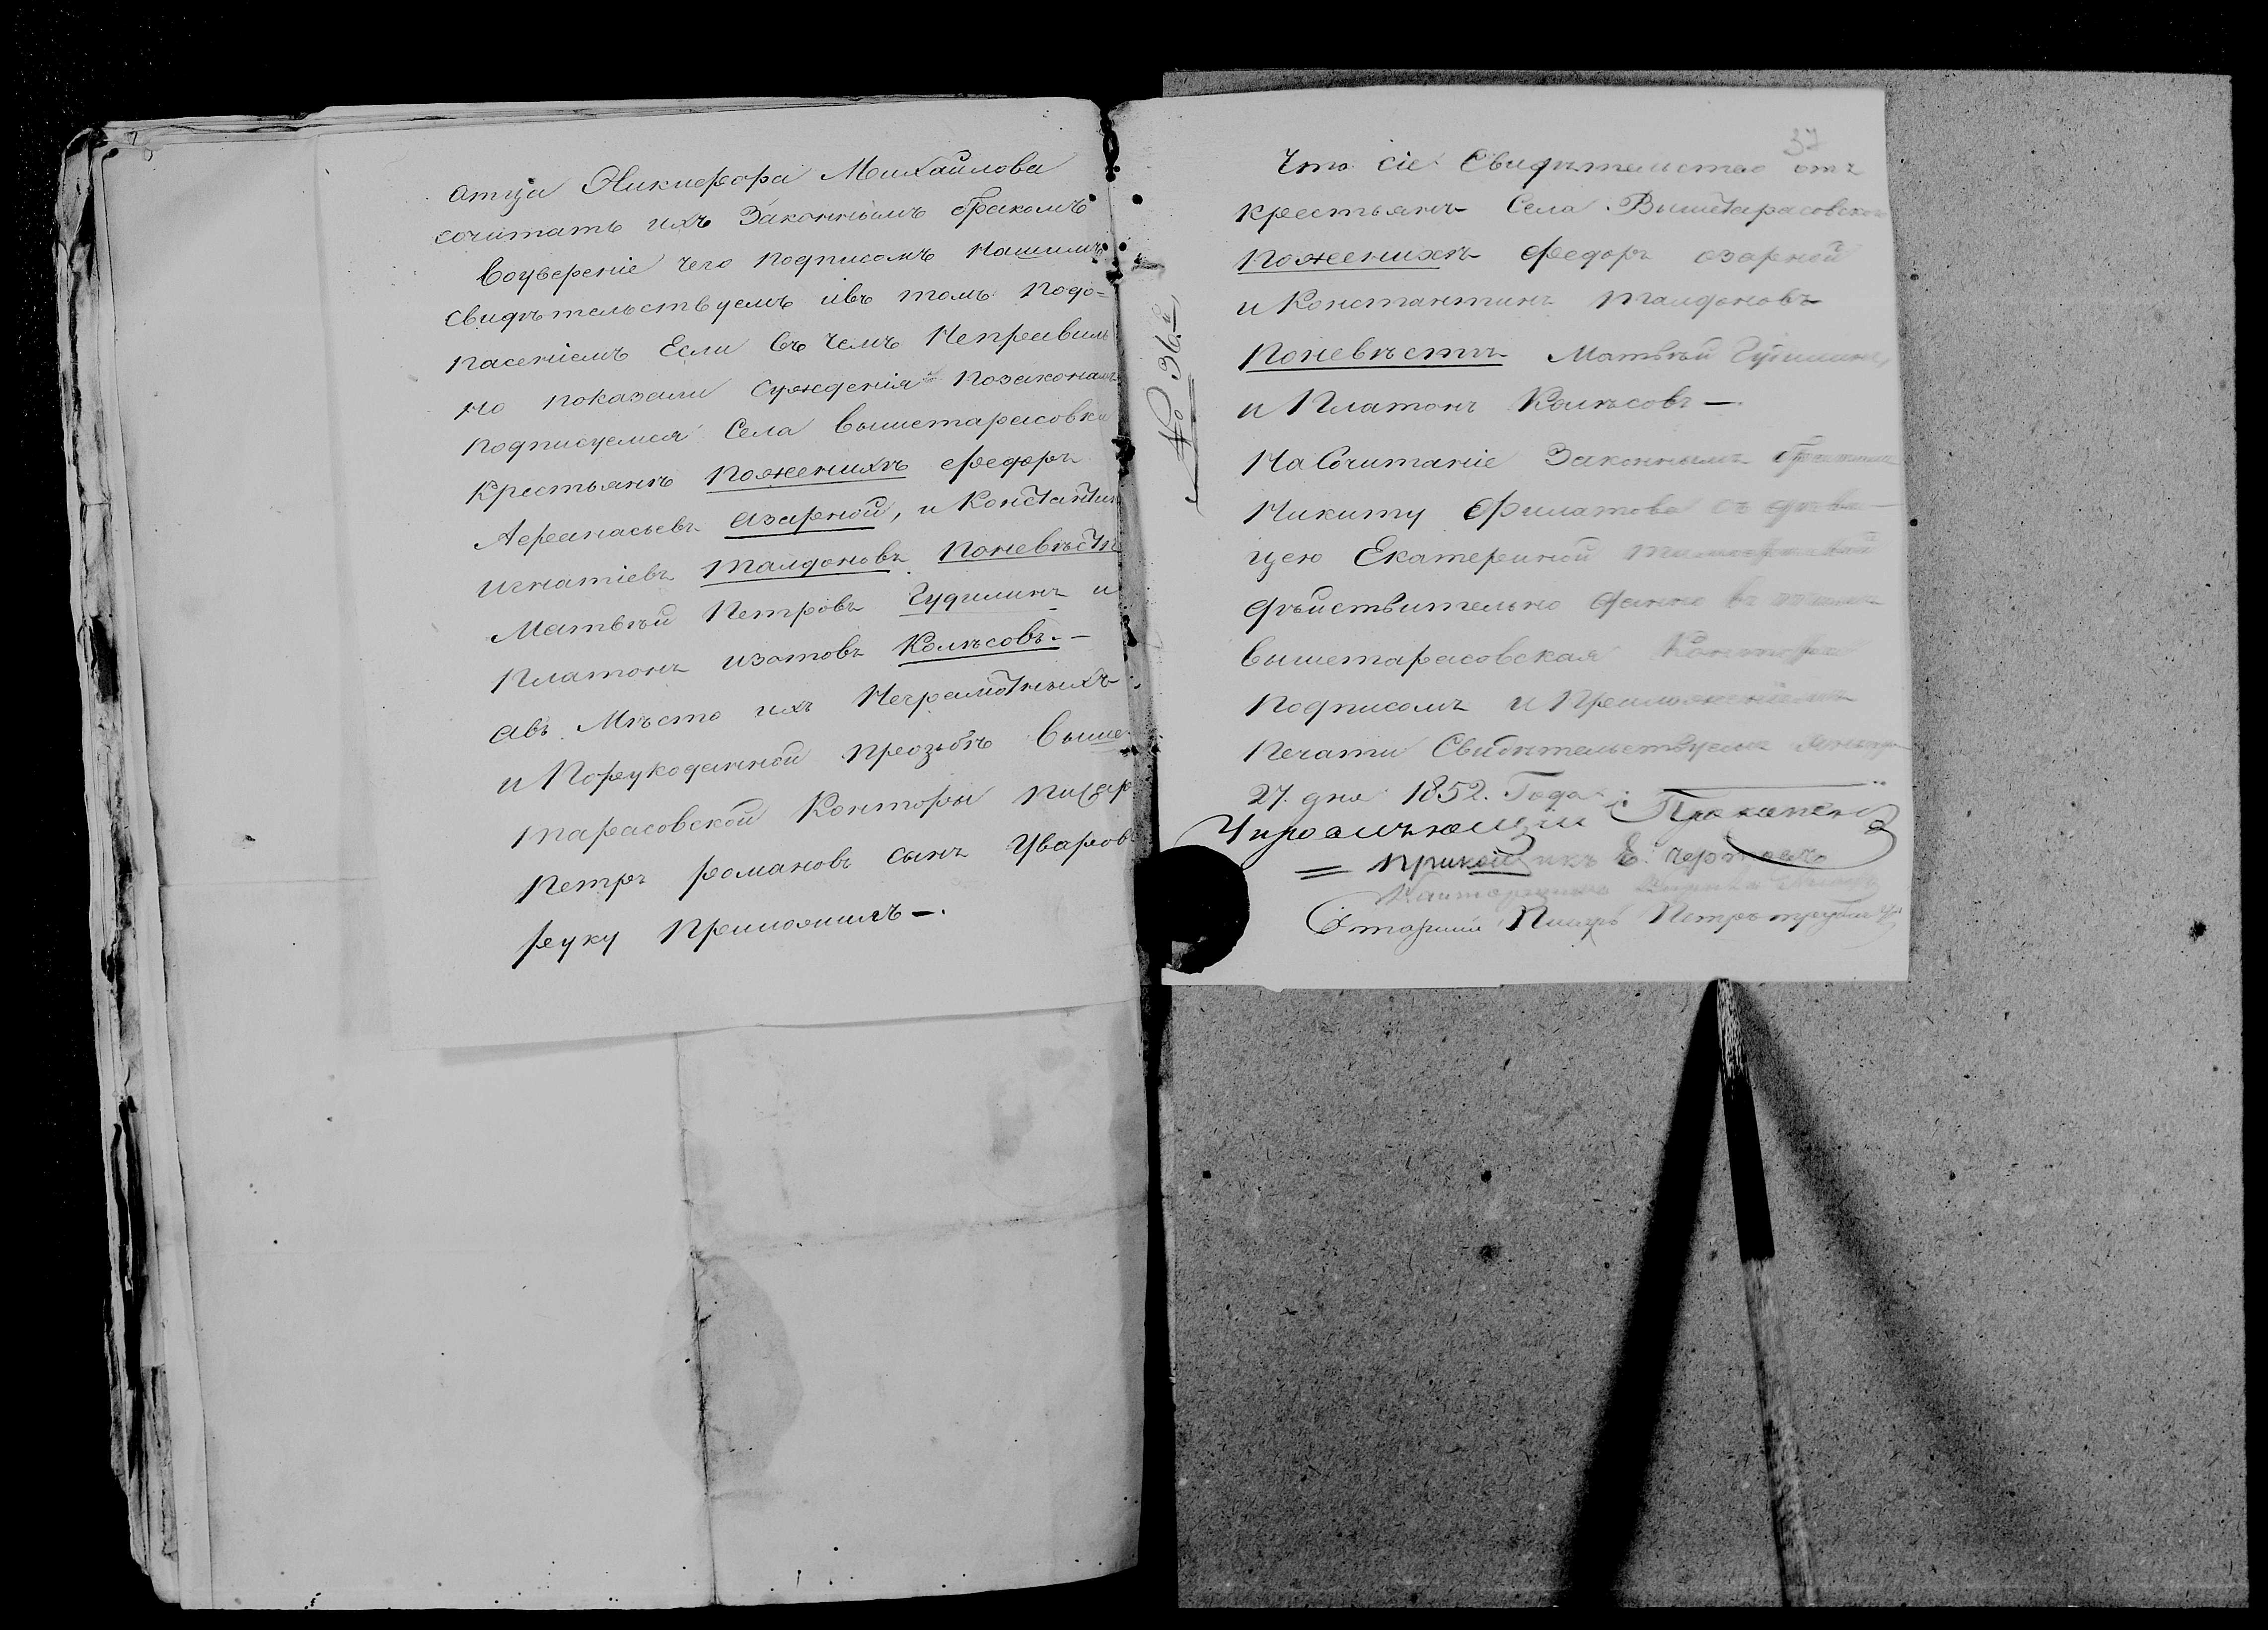 отца Никифора Михайлова
сочитать ихъ Законнымъ бракомъ
Воуверение чего подписомъ Нашимъ
свидѣтельствуемъ ивъ томъ подо=
пасениемъ Если Въ чемъ Неправиль
но показали суждения позаконамъ
подписуемся Села Вышетарасовки
Крестьянъ поженихѣ Федоръ
Афанасьевъ Азарной, и Константинъ
Игнатіевъ Талдоновъ. Поневѣстѣ
Матвѣй Петровъ Гудилинъ и
Платонъ изотовъ Колѣсовъ. —
Авъ Мѣсто ихъ Неграмотныхъ
и Порукоданной прозьбѣ Выше
тарасовской Конторы писарь
Петръ романовъ сынъ Уваровъ
руку Приложилъ —.
37
Что сіе Свидѣтельство отъ
крестьянъ Села Вышетарасовской
Поженихѣ Федоръ озарной
и Константинъ Талдоновъ
Поневѣстѣ Матвѣй
и Платонъ Колѣсовъ —.
На Сочитаніе Законнымъ бракомъ
Никиту Филатова съ дѣви—
цею Екатериной
дѣйствительно данно въ
Вышетарасовская Контора
Подписомъ и Приложеніемъ
Печати Свидѣтельствуемъ Январ
27. дня 1852. Года.
Управляющій
= прикащикъ Е.
Старшій Писарь Петръ
№ 36.